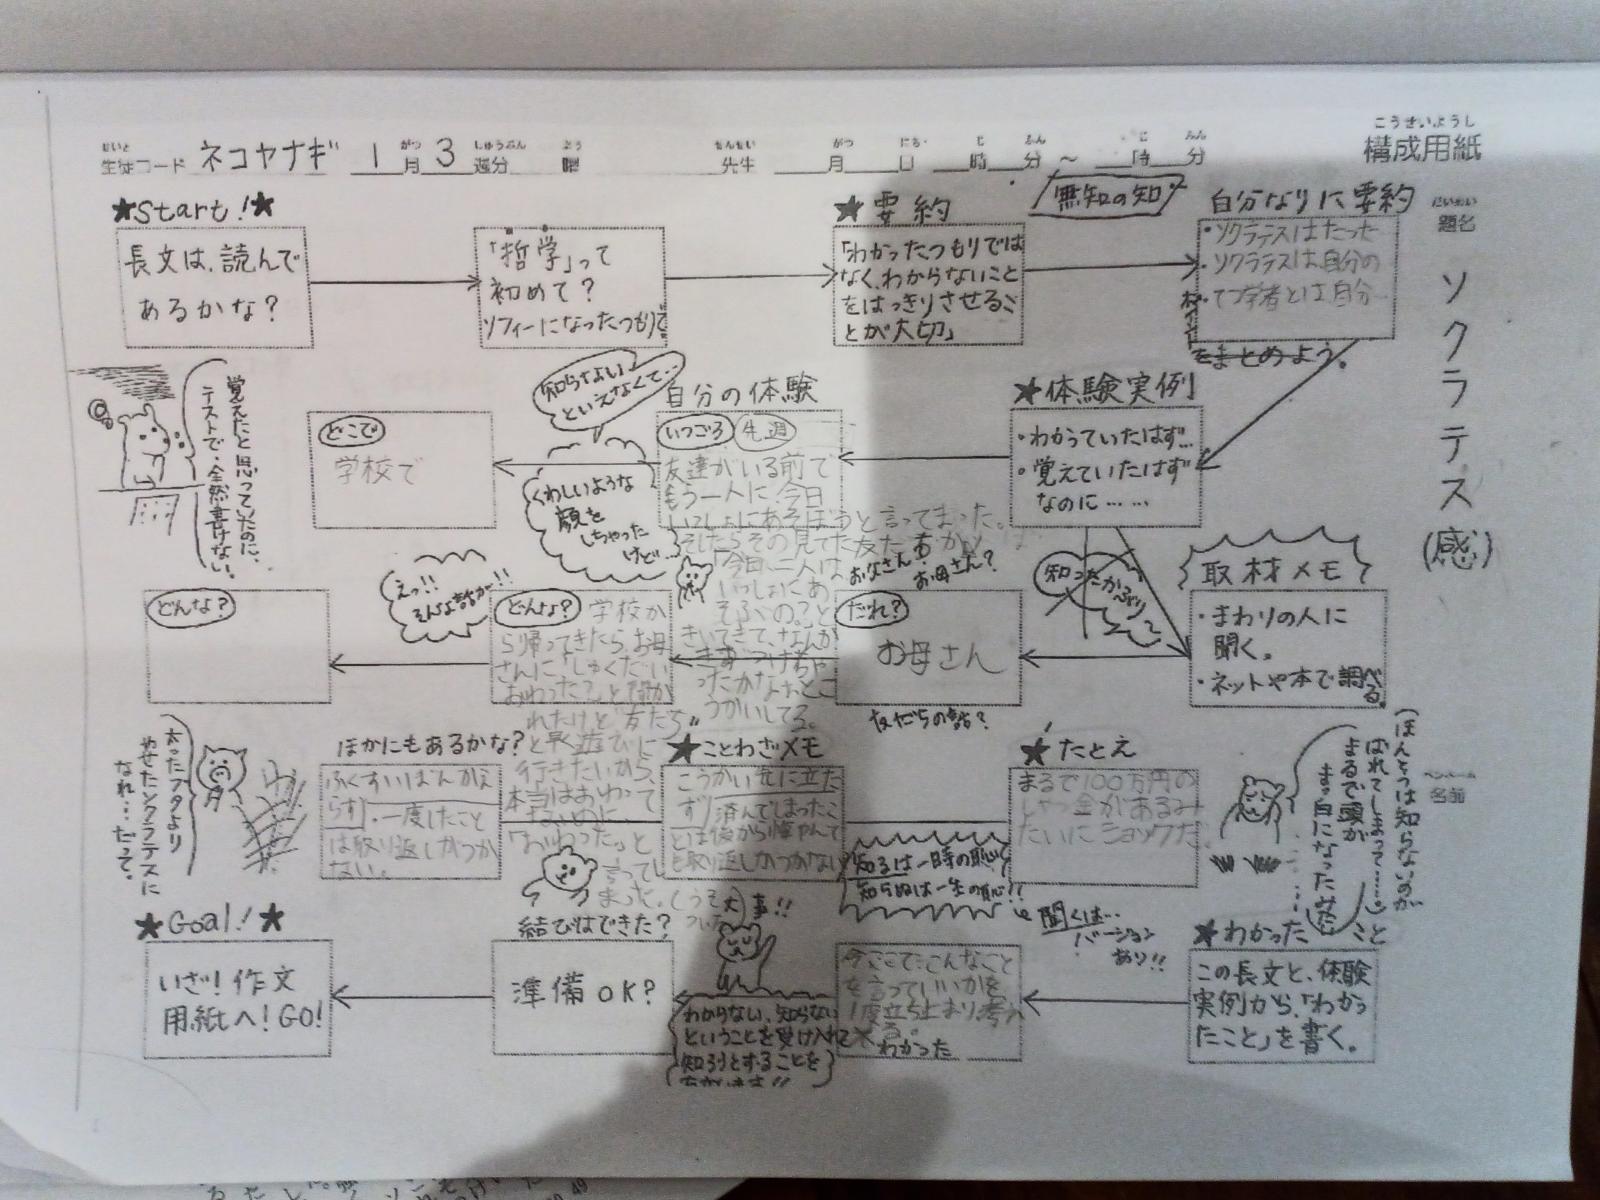 こうせいようし
構成用紙
せいと がつ しゅうぶん よう せんせい がつ にち じ ふん じ ふん
生徒コード ネコヤナギ 1月3週分 曜 先生 月 日 時 分 〜 時 分
だいめい
題名
ソクラテス(感)
ペンネーム
名前
★Start!★
長文は、読んで
あるかな?
「哲学」って
初めて?
ソフィーになったつもりで
★要約
「わかったつもりでは
なく、わからないこと
をはっきりさせるこ
とが大切」
無知の知
自分なりに要約
・ソクラテスはたった
・ソクラテスは自分の
・てつ学者とは自分
をまとめよう。
★体験実例
・わかっていたはず…
・覚えていたはず
なのに……
自分の体験
いつごろ 先週
友達がいる前で
もう一人に、今日
いっしょにあそぼうと言ってまった。
そしたらその見てた友だち
「今日、二人は
いっしょにあ
そぶの?」と
きいてきて、なんか
きずつけちゃ
ったかなおとこ
うかいしてる。
知らないよ
といえなくて…
くわしいような
顔を
しちゃった
けど…
どこで
学校で
覚えたと思っていたのに、
テストで、全然書けない。
取材メモ
・まわりの人に
聞く。
・ネットや本で調べる。
知ったかぶり〜
お父さん?
お母さん?
だれ?
お母さん
友だちの話?
えっ!!
そんな話が!!
どんな?
学校か
ら帰ってきたら、お母
さんに「しゅくだい
おわった?」と聞か
れたけど"友だち"
と早く遊びに
行きたいから、
本当はおわって
ないのに、
「おわった」と
言ってし
まった。(うそ
ついた)
どんな?
★たとえ
まるで100万円の
しゃっ金があるみ
たいにショックだ。
(ほんとうは知らないのが
ばれてしまって……
まるで頭が
まっ白になったみたい
★ことわざメモ
こうかい先に立た
ず/済んでしまったこ
とは後から悔やんで
も取り返しがつかない
知るは一時の恥
知らぬは一生の恥!!
聞くは…
バージョン
あり!!
ほかにもあるかな?
ふくすいぼんにかえ
らず/一度したこと
は取り返しがつか
ない。
太ったブタより
やせたソクラテスに
なれ…だって。
★わかったこと
この長文と、体験
実例から、「わかっ
たこと」を書く。
今ここで、こんなこと
を言っていいかを
1度立ち止まり考え
る。
わかった
大事!!
わからない、知らない
ということを受け入れて
知ろうとすることを
結びはできた?
準備OK?
★Goal!★
いざ!作文
用紙へ!GO!